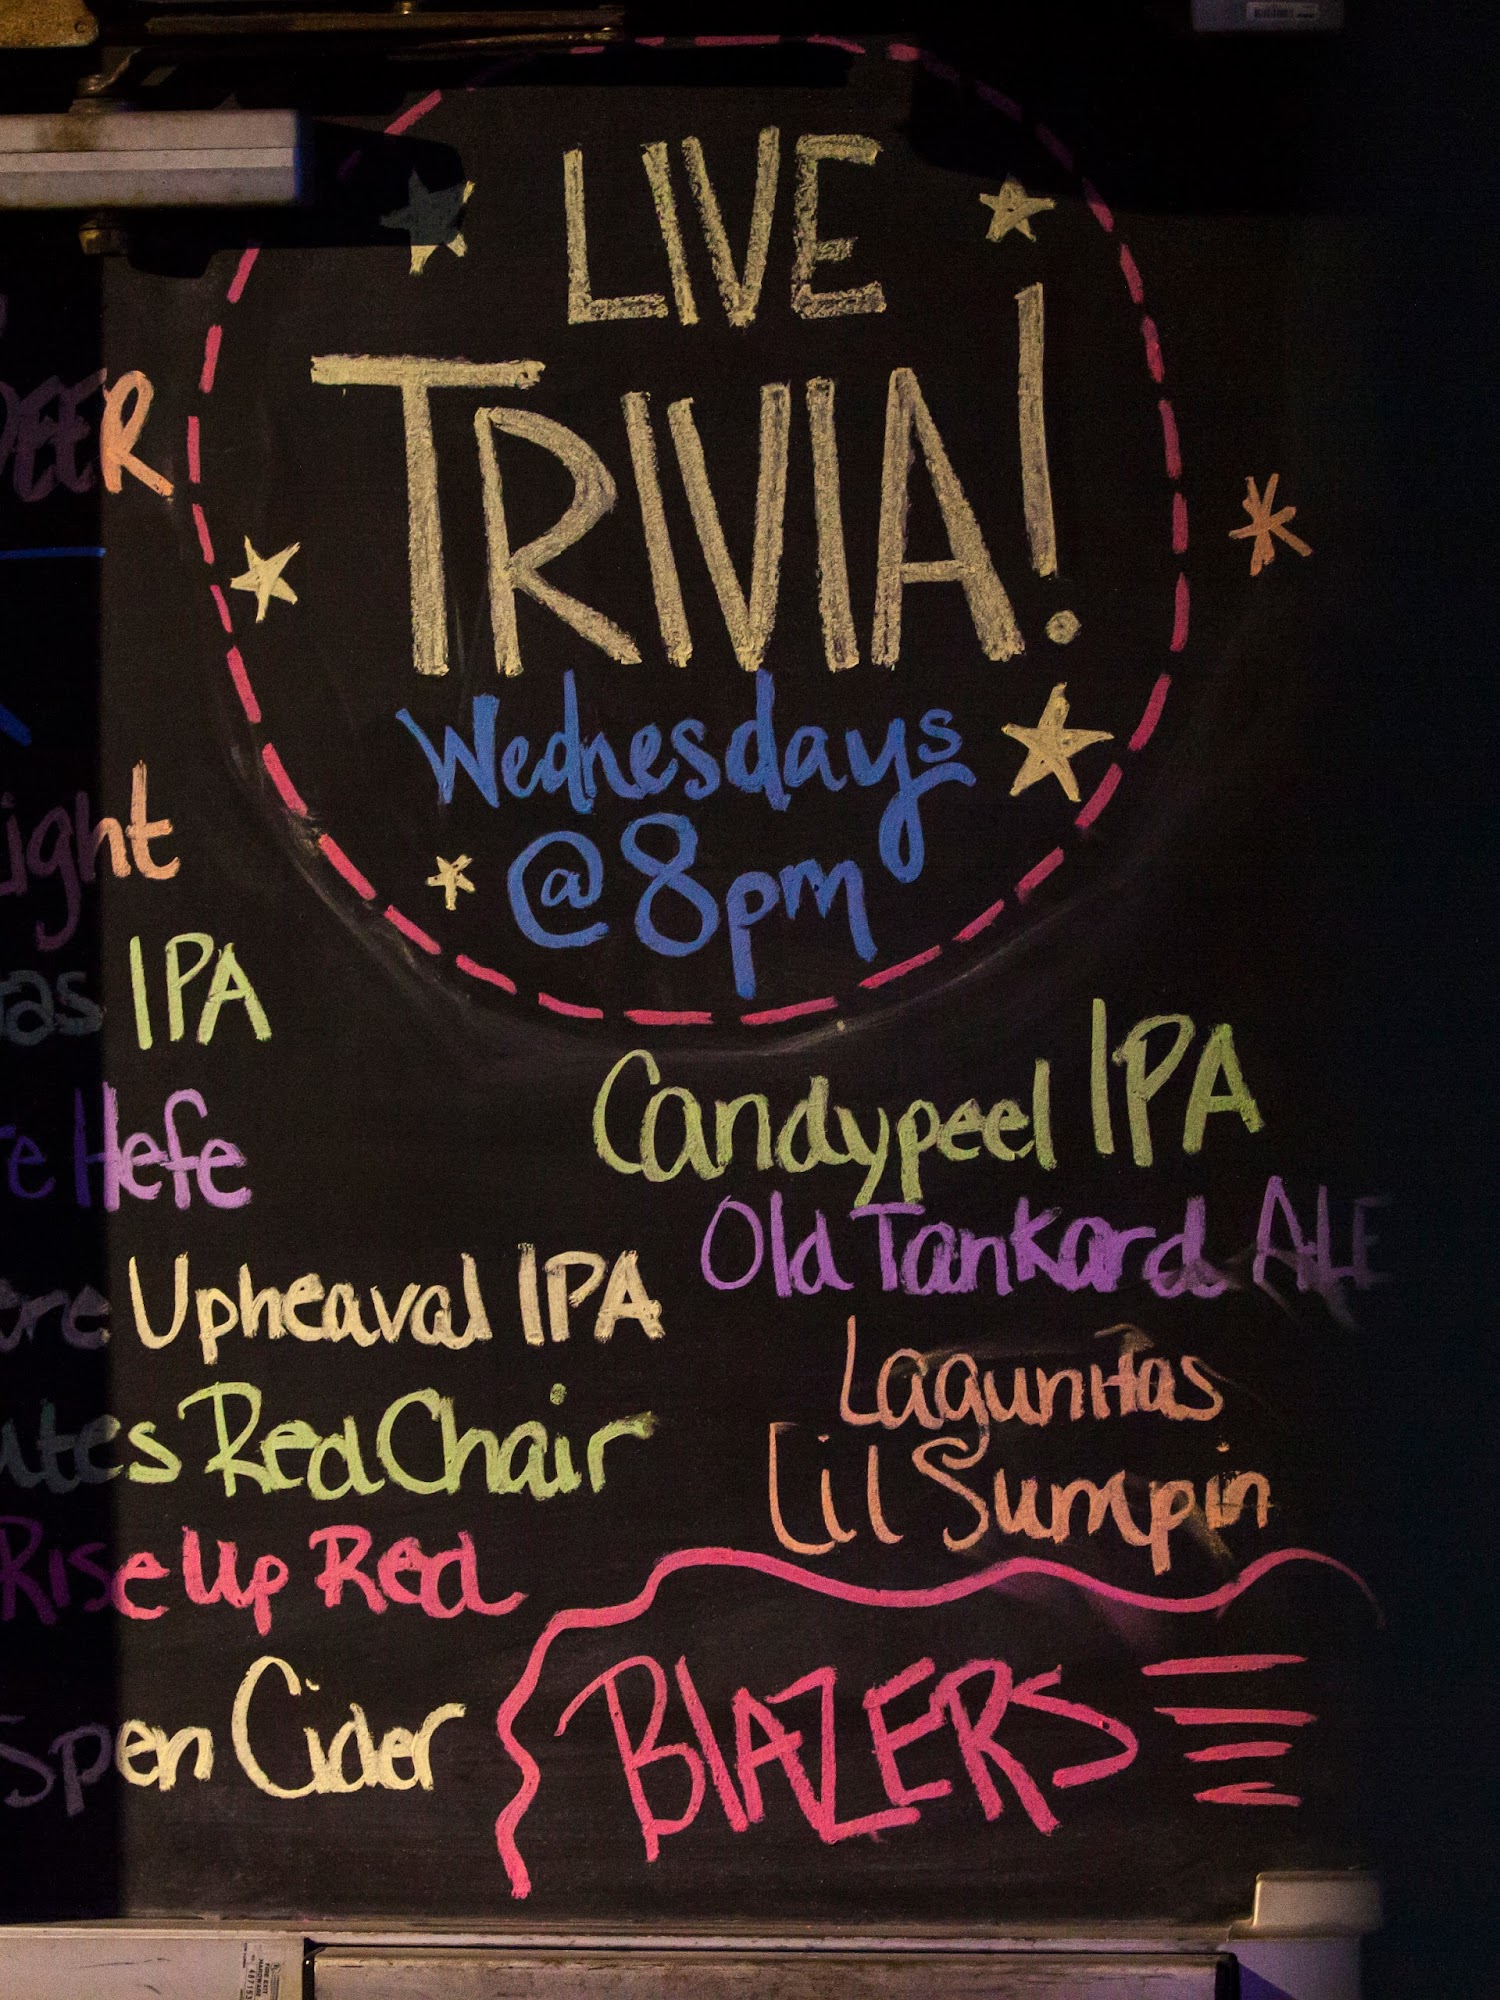 LIVE
TRIVIA!
Wednesdays
@ 8pm
IPA
Hefe
Upheaval IPA
Red Chair
Rise Up Red
Cider
Candypeel IPA
Old Tankard ALE
Lagunitas
Lil Sumpin
BLAZERS